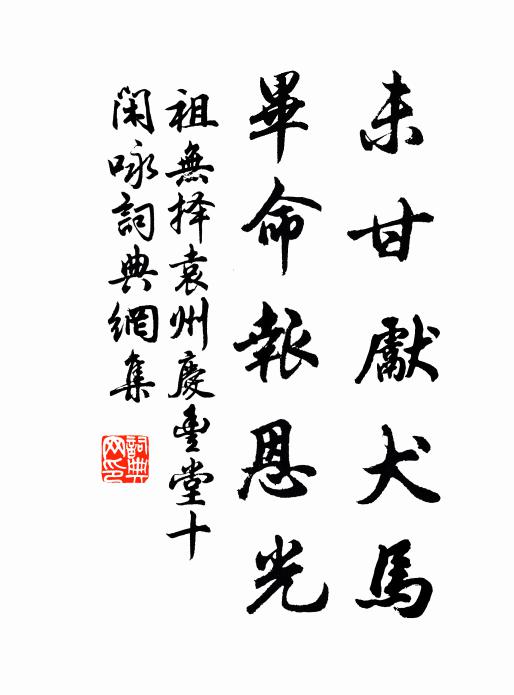 未甘獻犬馬
畢命報恩光
祖無择袁州慶豊堂十
閑咏詞典網集
詞典网印